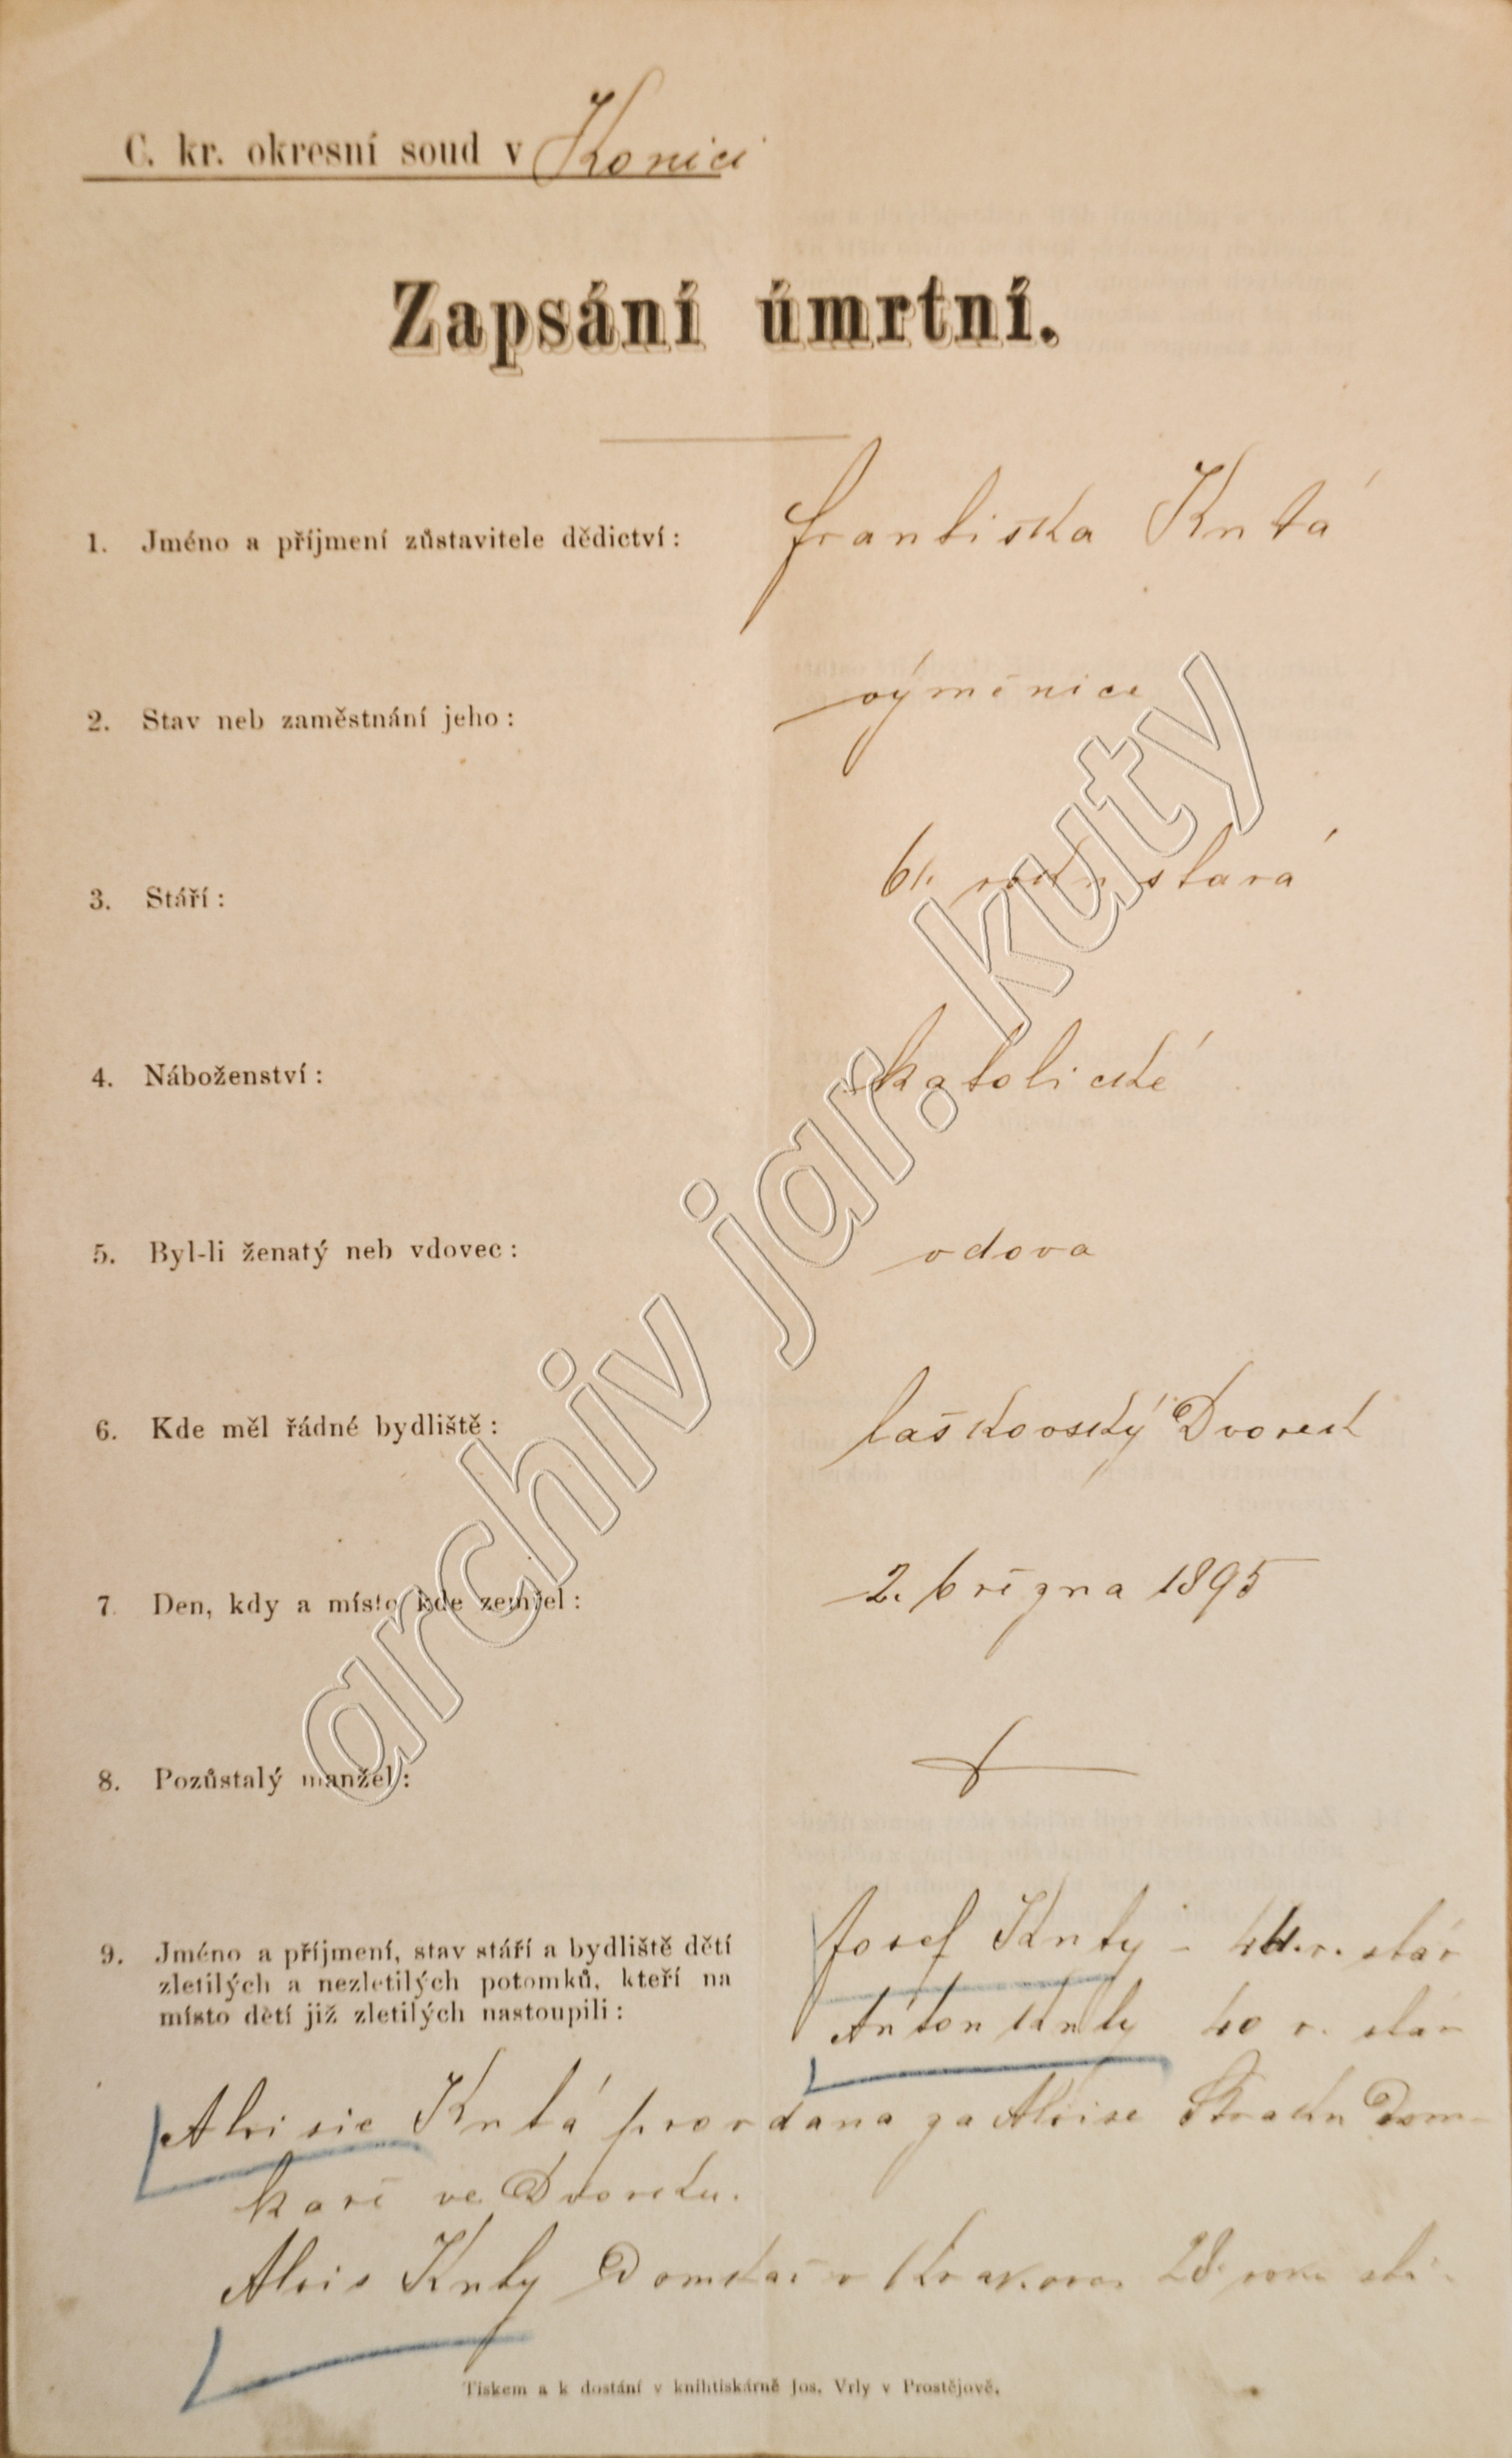 C. kr. okresní soud v Konici
Zapsání úmrtní.
1. Jméno a příjmení zůstavitele dědictví: Františka Kutá
2. Stav neb zaměstnání jeho: výměnice
3. Stáří: 61. roků stará
4. Náboženství: katolické
5. Byl-li ženatý neb vdovec: vdova
6. Kde měl řádné bydliště: laškovský Dvorek
7. Den, kdy a místo kde zemřel: 2. března 1895
8. Pozůstalý manžel:
9. Jméno a příjmení, stav stáří a bydliště dětí
zletilých a nezletilých potomků, kteří na
místo dětí již zletilých nastoupili:
Josef Kuty - 44.r. stár
Anton Kuty 40 r. stár
Aloisie Kutá provdana za Aloise Dom-
kaře ve Dvorku.
Alois Kuty Domkař v Krakovci 28 roku
Tiskem a k dostání v knihtiskárně Jos. Vrly v Prostějově.
archiv jar. kuty